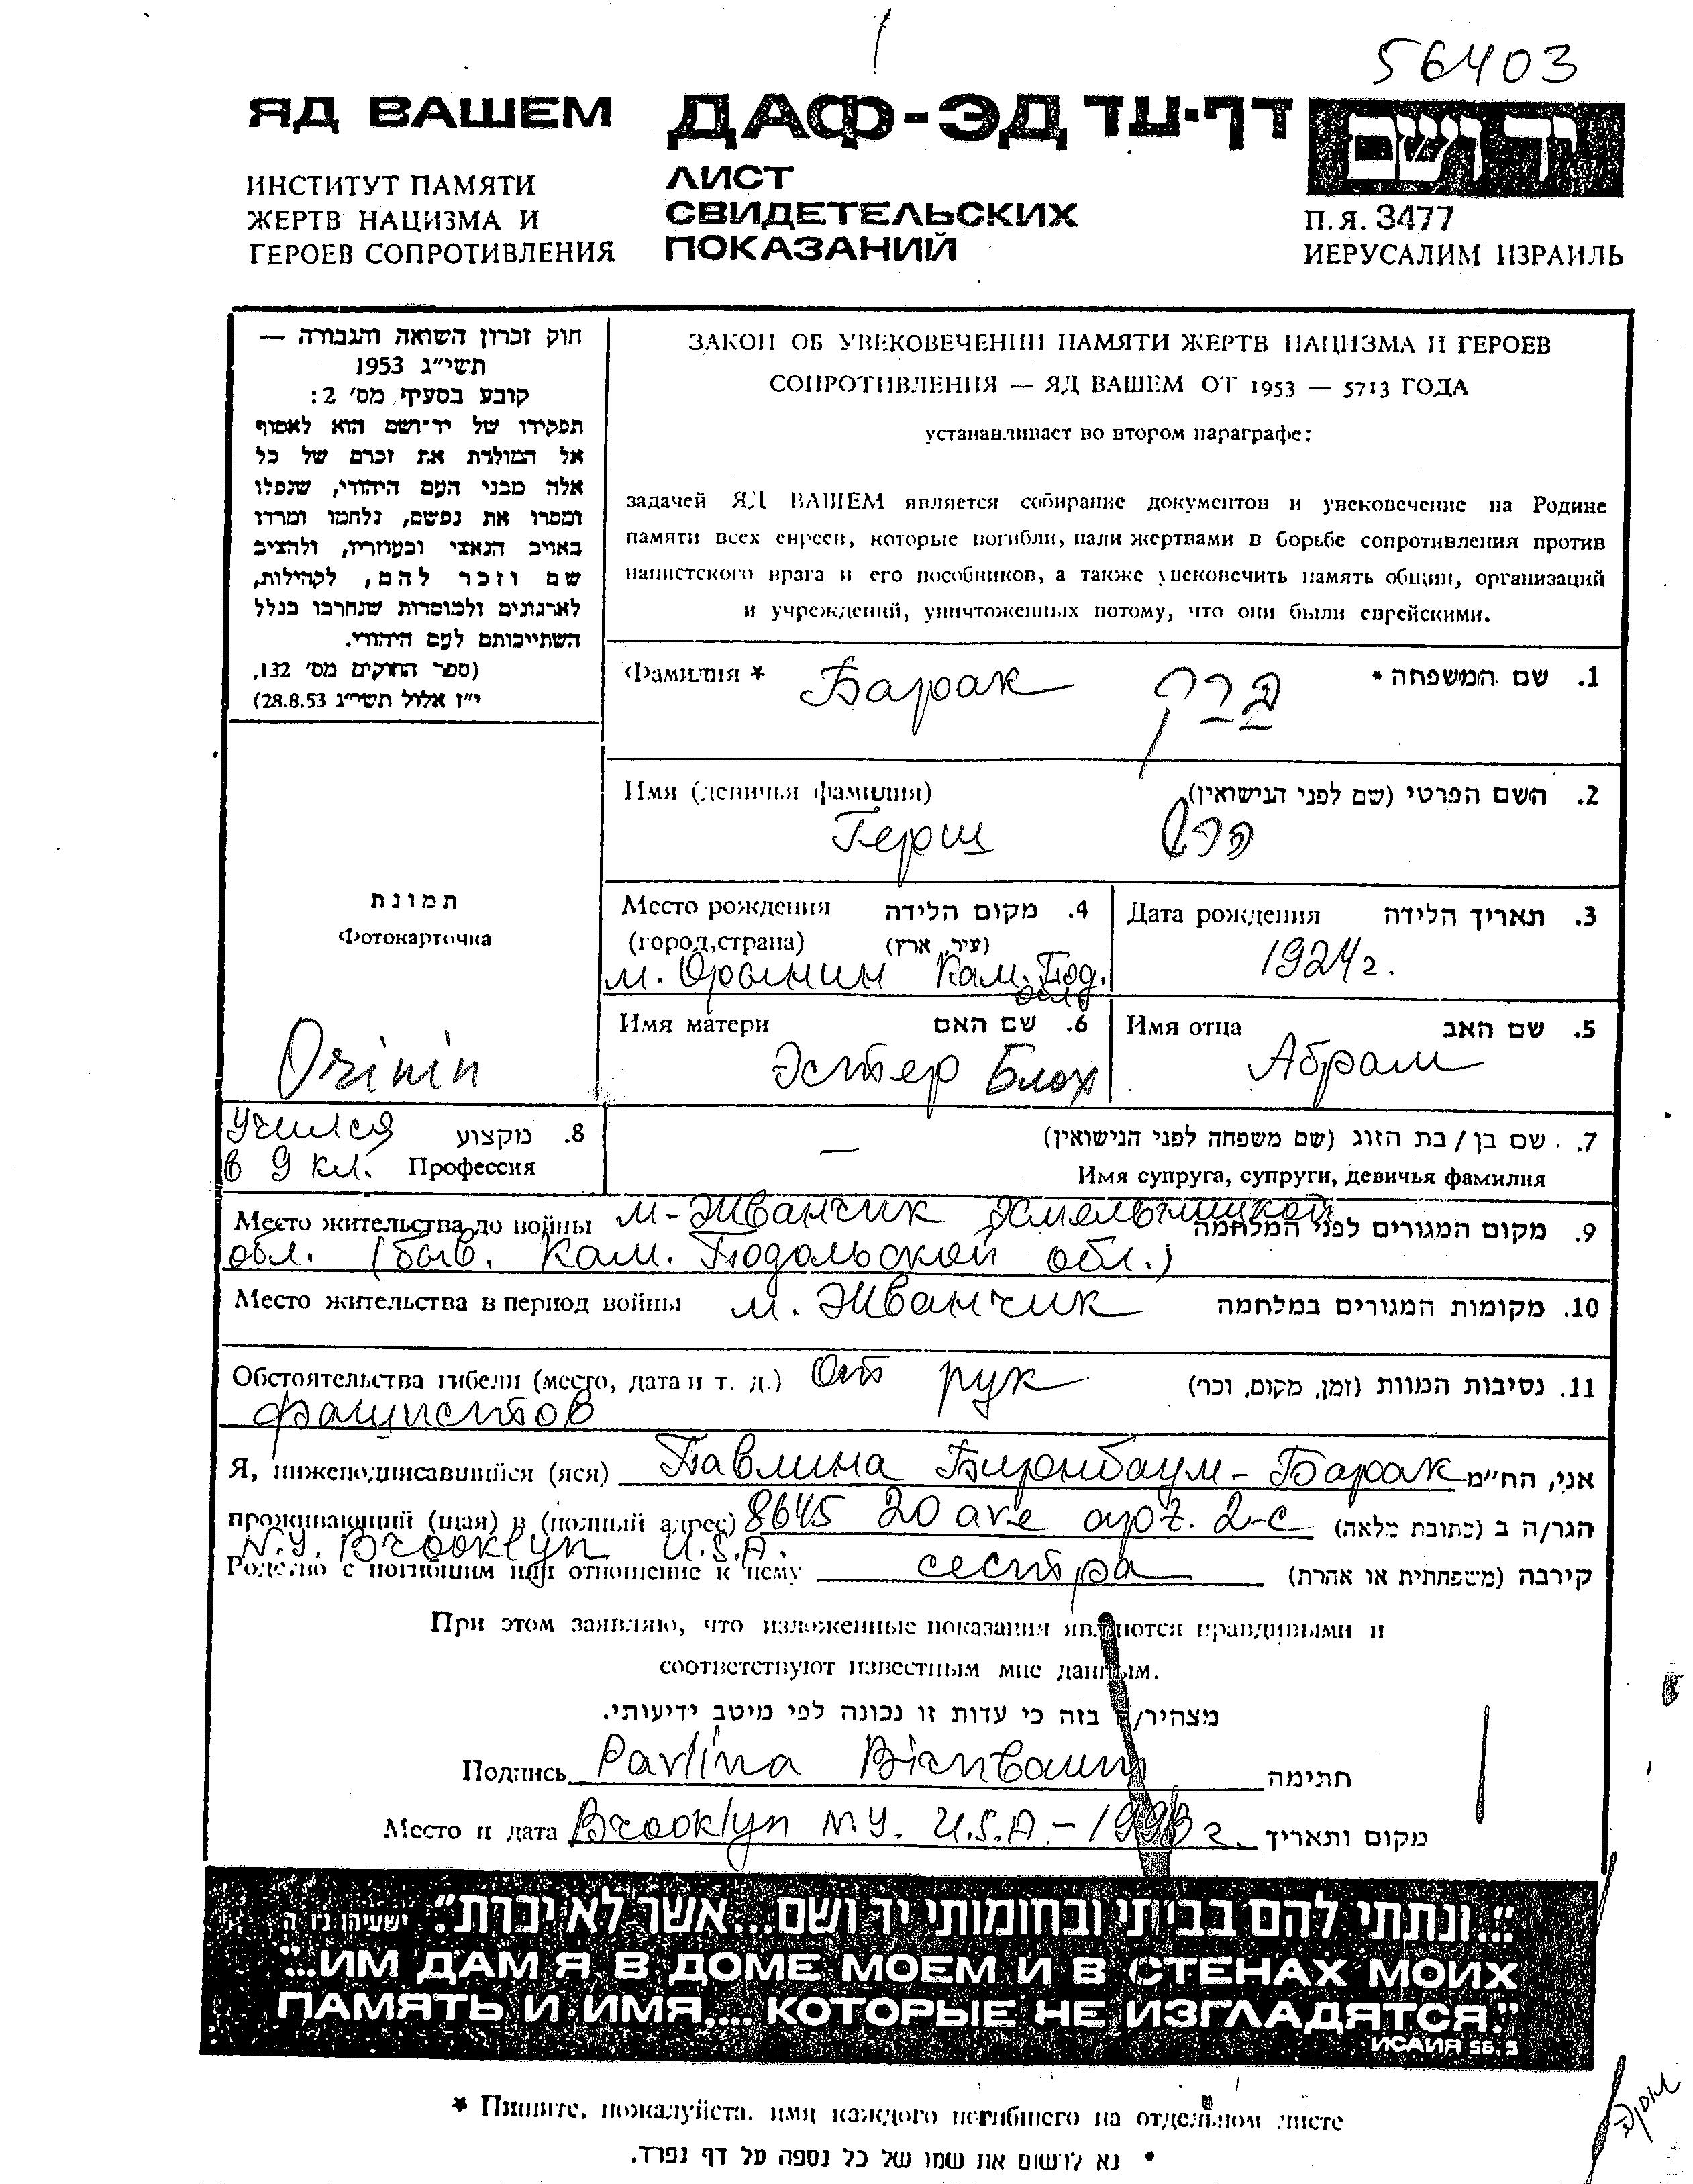 56403
ЯД ВАШЕМ ДАФ-ЭД דף-עד יד ושם
ИНСТИТУТ ПАМЯТИ
ЖЕРТВ НАЦИЗМА И
ГЕРОЕВ СОПРОТИВЛЕНИЯ
ЛИСТ
СВИДЕТЕЛЬСКИХ
ПОКАЗАНИЙ
П.Я. 3477
ИЕРУСАЛИМ ИЗРАИЛЬ
חוק זכרון השואה והגבורה —
תשי״ג 1953
קובע בסעיף מס׳ 2:
תפקידו של יד־ושם הוא לאסוף
אל המולדת את זכרם של כל
אלה מבני העם היהודי, שנפלו
ומסרו את נפשם, נלחמו ומרדו
באויב הנאצי ובעוזריו, ולהציב
שם וזכר להם, לקהילות,
לארגונים ולמוסדות שנחרבו בגלל
השתייכותם לעם היהודי.
(ספר החוקים מס׳ 132,
י״ז אלול תשי״ג 28.8.53)
ЗАКОН ОБ УВЕКОВЕЧЕНИИ ПАМЯТИ ЖЕРТВ НАЦИЗМА И ГЕРОЕВ
СОПРОТИВЛЕНИЯ — ЯД ВАШЕМ ОТ 1953 — 5713 ГОДА
устанавливает во втором параграфе:
задачей ЯД ВАШЕМ является собирание документов и увековечение на Родине
памяти всех евреев, которые погибли, пали жертвами в борьбе сопротивления против
нацистского врага и его пособников, а также увековечить память общин, организаций
и учреждений, уничтоженных потому, что они были еврейскими.
Фамилия * Барак ברק 1. שם המשפחה *
Имя (девичья фамилия) 2. השם הפרטי (שם לפני הנישואין)
Герш הרש
תמונת
Фотокарточка
Orinin
Место рождения 4. מקום הלידה
(город,страна) (עיר, ארץ)
м. Орынин Кам. Под.
обл
Дата рождения 3. תאריך הלידה
1924 г.
Имя матери 6. שם האם
Эстер Блох
Имя отца 5. שם האב
Абрам
Учился 8. מקצוע
в 9 кл. Профессия
— 7. שם בן / בת הזוג (שם משפחה לפני הנישואין)
Имя супруга, супруги, девичья фамилия
Место жительства до войны м-Жванчик Хмельницкой 9. מקום המגורים לפני המלחמה
обл. (быв. Кам. Подольской обл.)
Место жительства в период войны м. Жванчик 10. מקומות המגורים במלחמה
Обстоятельства гибели (место, дата и т. д.) От рук 11. נסיבות המוות (זמן, מקום, וכו׳)
фашистов
Я, нижеподписавшийся (яся) Павлина Биренбаум-Барак אני, הח״מ
проживающий (щая) в (полный адрес) 8645 20 ave apt. 2-c הגר/ה ב (כתובת מלאה)
N.Y. Brooklyn U.S.A.
Родство с погибшим или отношение к нему сестра קירבה (משפחתית או אחרת)
При этом заявляю, что изложенные показания являются правдивыми и
соответствуют известным мне данным.
מצהיר/ה בזה כי עדות זו נכונה לפי מיטב ידיעותי.
Подпись Pavlina Birnbaum חתימה
Место и дата Brooklyn N.Y. U.S.A. - 1993 г. מקום ותאריך
״...ונתתי להם בביתי ובחומותי יד ושם...אשר לא יכרת״. ישעיהו נו ה
"...ИМ ДАМ Я В ДОМЕ МОЕМ И В СТЕНАХ МОИХ
ПАМЯТЬ И ИМЯ.... КОТОРЫЕ НЕ ИЗГЛАДЯТСЯ."
ИСАИЯ 56.5
* Пишите, пожалуйста. имя каждого погибшего на отдельном листе
* נא לרשום את שמו של כל נספה על דף נפרד.